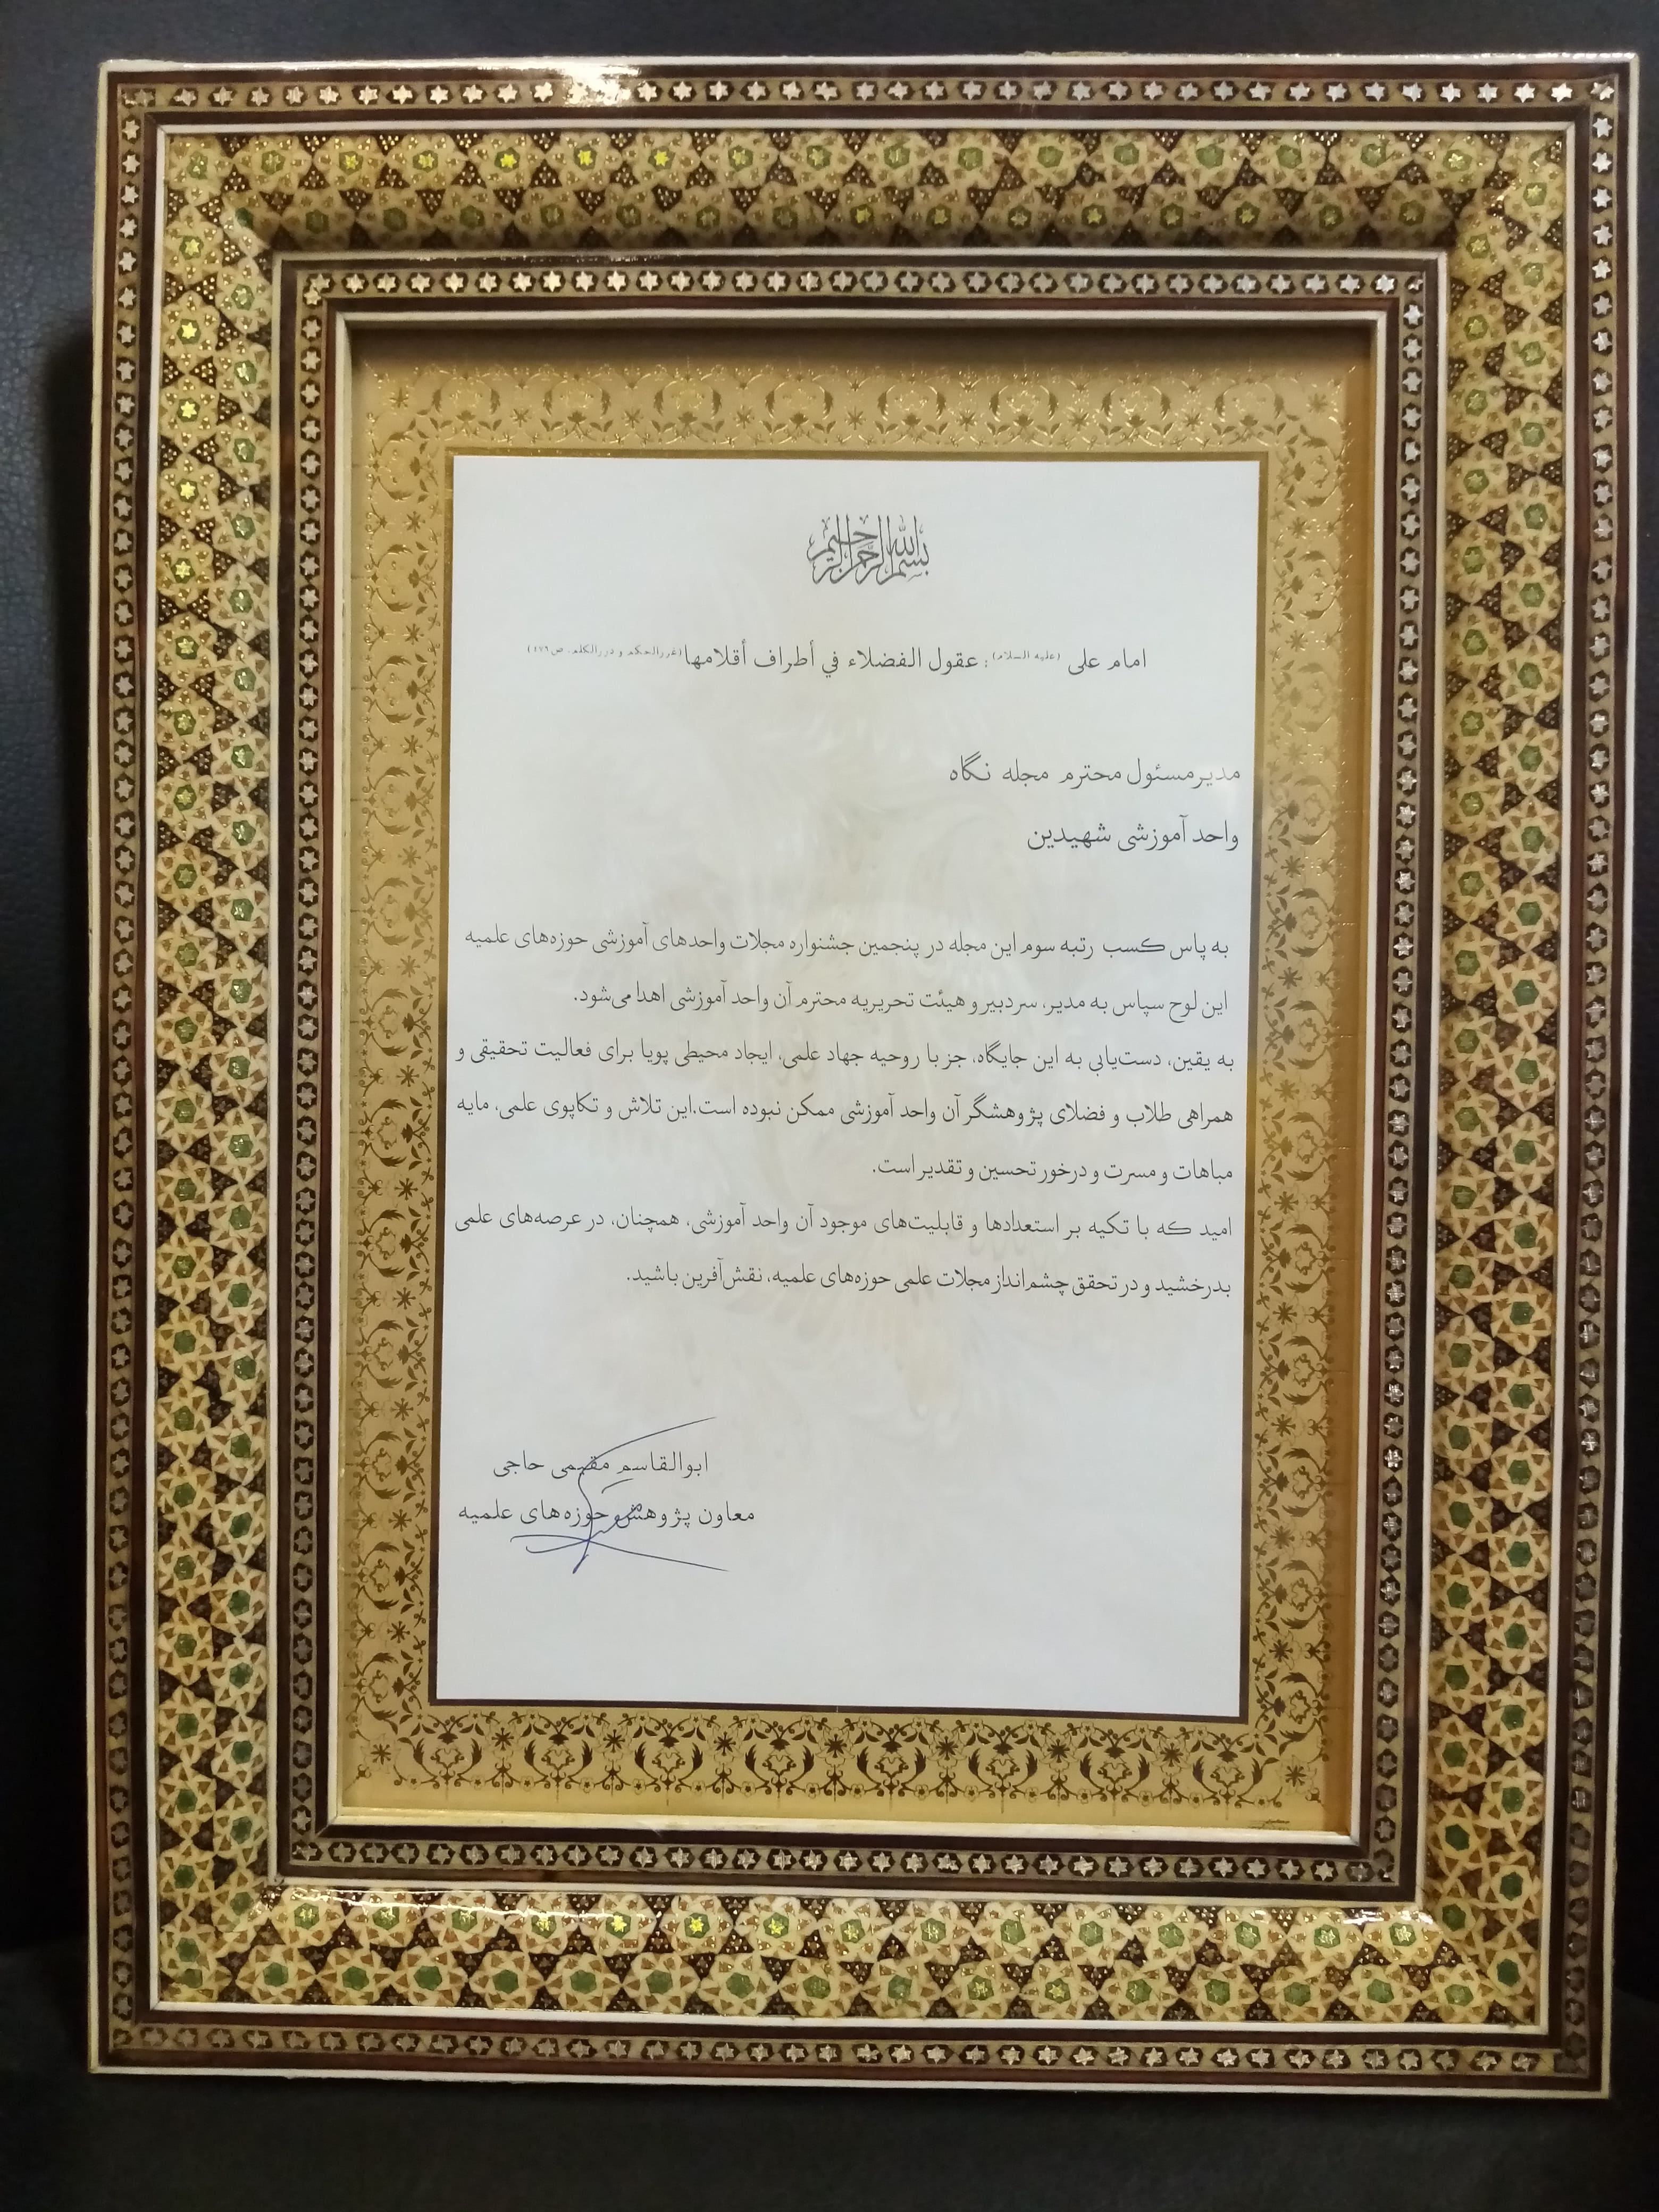 بسم الله الرحمن الرحیم
امام علی (علیه السلام): عقول الفضلاء في أطراف أقلامها (غررالحکم و دررالکلم، ص ۴۷۶)
مدیرمسئول محترم مجله نگاه
واحد آموزشی شهیدین
به پاس کسب رتبه سوم این مجله در پنجمین جشنواره مجلات واحدهای آموزشی حوزه‌های علمیه
این لوح سپاس به مدیر، سردبیر و هیئت تحریریه محترم آن واحد آموزشی اهدا می‌شود.
به یقین، دست‌یابی به این جایگاه، جز با روحیه جهاد علمی، ایجاد محیطی پویا برای فعالیت تحقیقی و
همراهی طلاب و فضلای پژوهشگر آن واحد آموزشی ممکن نبوده است.این تلاش و تکاپوی علمی، مایه
مباهات و مسرت و درخور تحسین و تقدیر است.
امید که با تکیه بر استعدادها و قابلیت‌های موجود آن واحد آموزشی، همچنان، در عرصه‌های علمی
بدرخشید و در تحقق چشم‌انداز مجلات علمی حوزه‌های علمیه، نقش‌آفرین باشید.
ابوالقاسم مقیمی حاجی
معاون پژوهش حوزه‌های علمیه